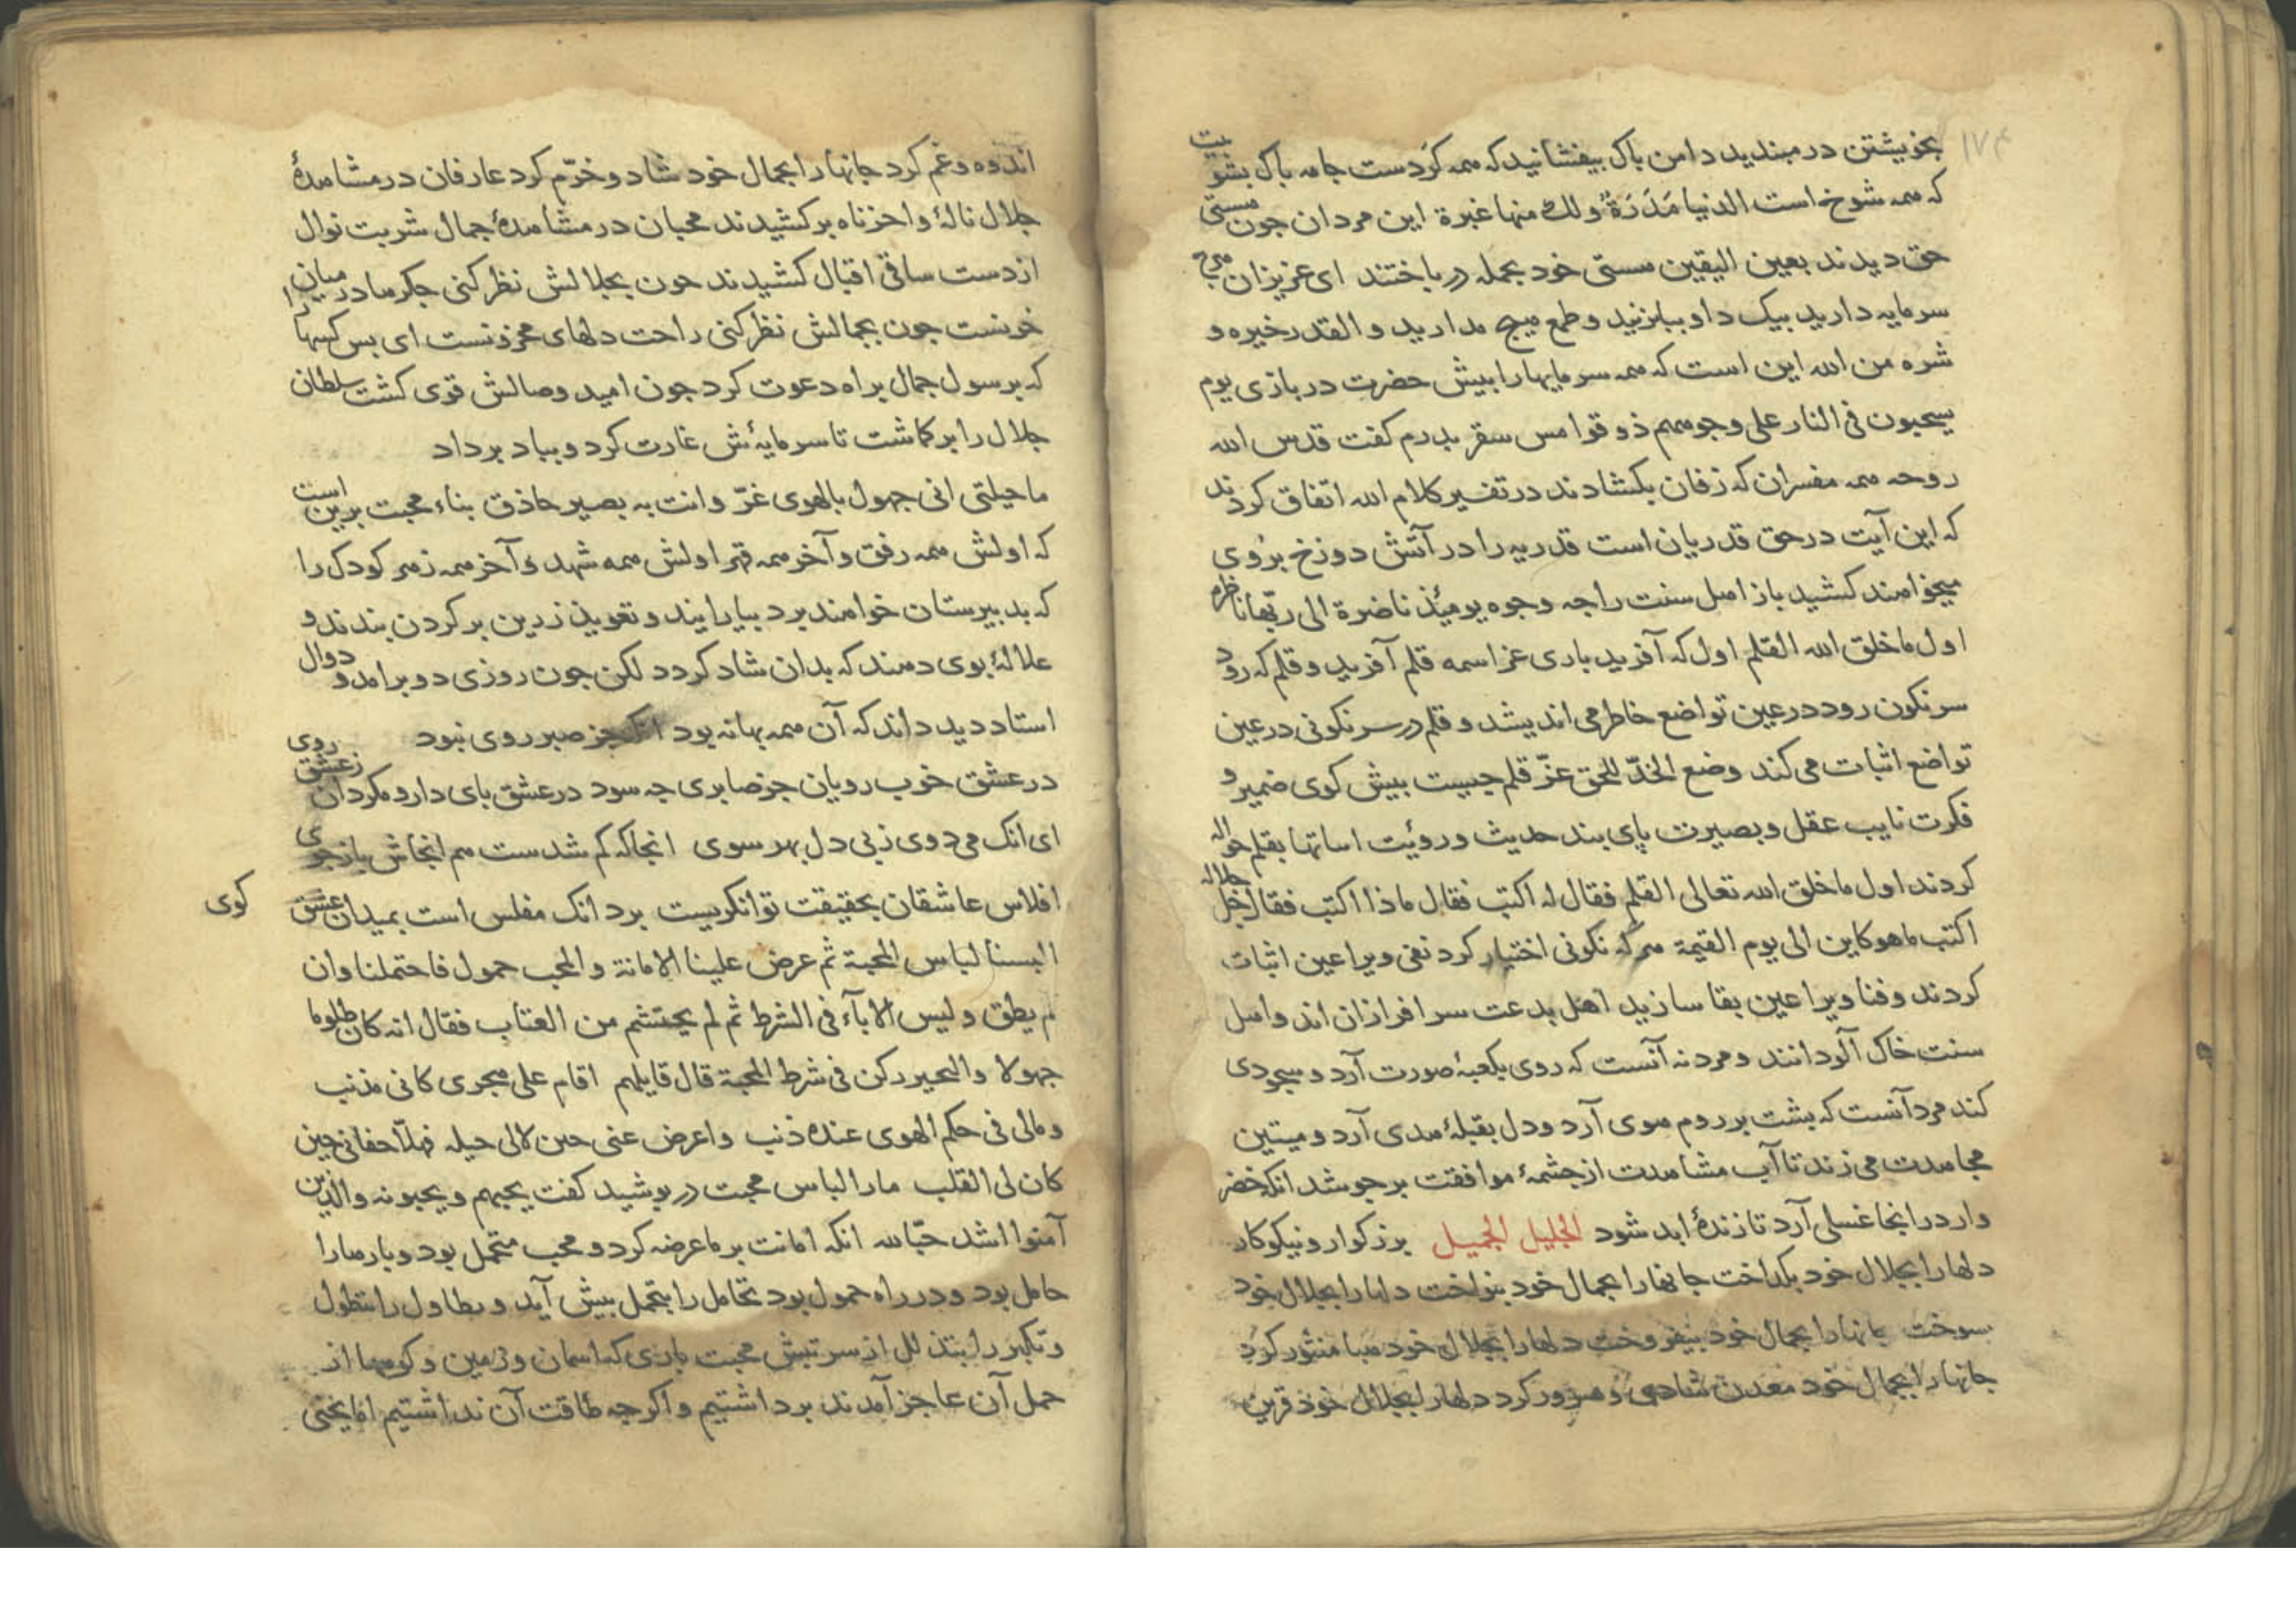 ۱۷۴
بخویشتن در مبندید دامن باک بیفشانید که همه کرَدست جامه باک بشوییت
که همه شوخ است الدنیا مَدَرَةٌ ولك منها غبرة این مردان جون هستی
حق دیدند بعین الیقین هستی خود بجمله در باختند ای عزیزان هرج
سرمایه دارید بیک داو ببازید و طمع هیج مدارید و القدر خیره و
شره من الله این است که همه سرمایها را ببیش حضرت دربازی یوم
یسحبون فی النار علی وجوههم ذوقوا مس سقر بدرم کفت قدس الله
روحه همه مفسران که زفان بکشادند در تفسیر کلام الله اتفاق کردند
که این آیت در حق قدریان است قدریه را در آتش دوزخ برُوی
میخواهند کشید باز اهل سنت را جه وجوه یومئذ ناضرة الی ربّها ناظرة
اول ما خلق الله القلم اول که آفرید باری عز اسمه قلم آفرید و قلم که رود
سرنکون رود در عین تواضع خاطر می اندیشد و قلم در سرنکونی در عین
تواضع اثبات می کند وضع الخدّ للحق عزّ قلم جیست ببیش کوی ضمیر و
فکرت نایب عقل و بصیرت پای بند حدیث و روئیت اساتها بقلم حواله
کردند اول ما خلق الله تعالی القلم فقال له اکتب فقال ماذا اکتب فقال جل جلاله
اکتب ما هو کاین الی یوم القیمة هر که نکونی اختیار کرد نفی ویرا عین اثبات
کردند و فنا ویرا عین بقا سازید اهل بدعت سرافرازان اند و اهل
سنت خاک آلودانند و مرد نه آنست که روی بکعبهٔ صورت آرد و سجودی
کند مرد آنست که بشت بر روم هوی آرد و دل بقبلهٔ هدی آرد و میتین
مجاهدت می زند تا آب مشاهدت از جشمهٔ موافقت برجوشد انکه خضر
وار در انجا غسلی آرد تا زندهٔ ابد شود الجلیل الجمیل بزرکوار و نیکوکار
دلها را بجلال خود بکداخت جانها را بجمال خود بنواخت دلها را بجلال خود
سوخت جانها را بجمال خود بیفروخت دلها را بجلال خود هبا منثور کرد
جانها را بجمال خود معدن شادی و سرور کرد دلها را بجلال خود قرین
اندوه و غم کرد جانها را بجمال خود شاد و خرّم کرد عارفان در مشاهدهٔ
جلال نالهٔ واحزناه برکشیدند محبان در مشاهدهٔ جمال شربت نوال
از دست ساقی اقبال کشیدند جون بجلالش نظر کنی جکرها در میان
خونست جون بجمالش نظر کنی راحت دلهای محزونست ای بس کسها را
که برسول جمال براه دعوت کرد جون امید وصالش قوی کشت سلطان
جلال را برکماشت تا سرمایهٔش غارت کرد و بباد برداد
ما حیلتی انی جهول بالهوی غرّ وانت به بصیر حاذق بناء محبت برین است
که اولش همه رفق و آخر همه قهر اولش همه شهد و آخر همه زهر کودک را
که بدبیرستان خواهند برد بیارایند و تعویذ زرین بر کردن بندند و
علالهٔ بوی دهند که بدان شاد کردد لکن جون روزی دو برامد و دوال
استاد دید داند که آن همه بهانه بود جز صبر روی نبود
در عشق خوب رویان جز صابری جه سود در عشق بای دار و مکردان ز عشق روی
ای انک می دوی زبی دل بهر سوی انجا که کم شدست هم انجاش باز جوی
افلاس عاشقان بحقیقت توانکریست برد انک مفلس است بمیدان عشق کوی
البسنا لباس المحبة ثم عرض علینا الامانة والمحب حمول فاحتملنا وان
لم یطق و لیس الاباء فی الشرط ثم لم یحتشم من العتاب فقال انه کان ظلوما
جهولا والتحیر رکن فی شرط المحبة قال قایلهم اقام علی هجری کانی مذنب
ومالی فی حکم الهوی عنده ذنب واعرض عنی حین لا لی حیلة فهلّا جفانی حین
کان لی القلب ما را لباس محبت در بوشید کفت یحبهم و یحبونه والذین
آمنوا اشد حبّا لله انکه امانت بر ما عرضه کرد و محب متحمل بود و بارها را
حامل بود و در راه حمول بود تحامل را بتحمل بیش آید و تطاول را بتطول
و تکبر را بتذلل از سر تبش محبت باری که اسمان و زمین و کوهها از
حمل آن عاجز آمدند برداشتیم و اکر جه طاقت آن نداشتیم اما یختی